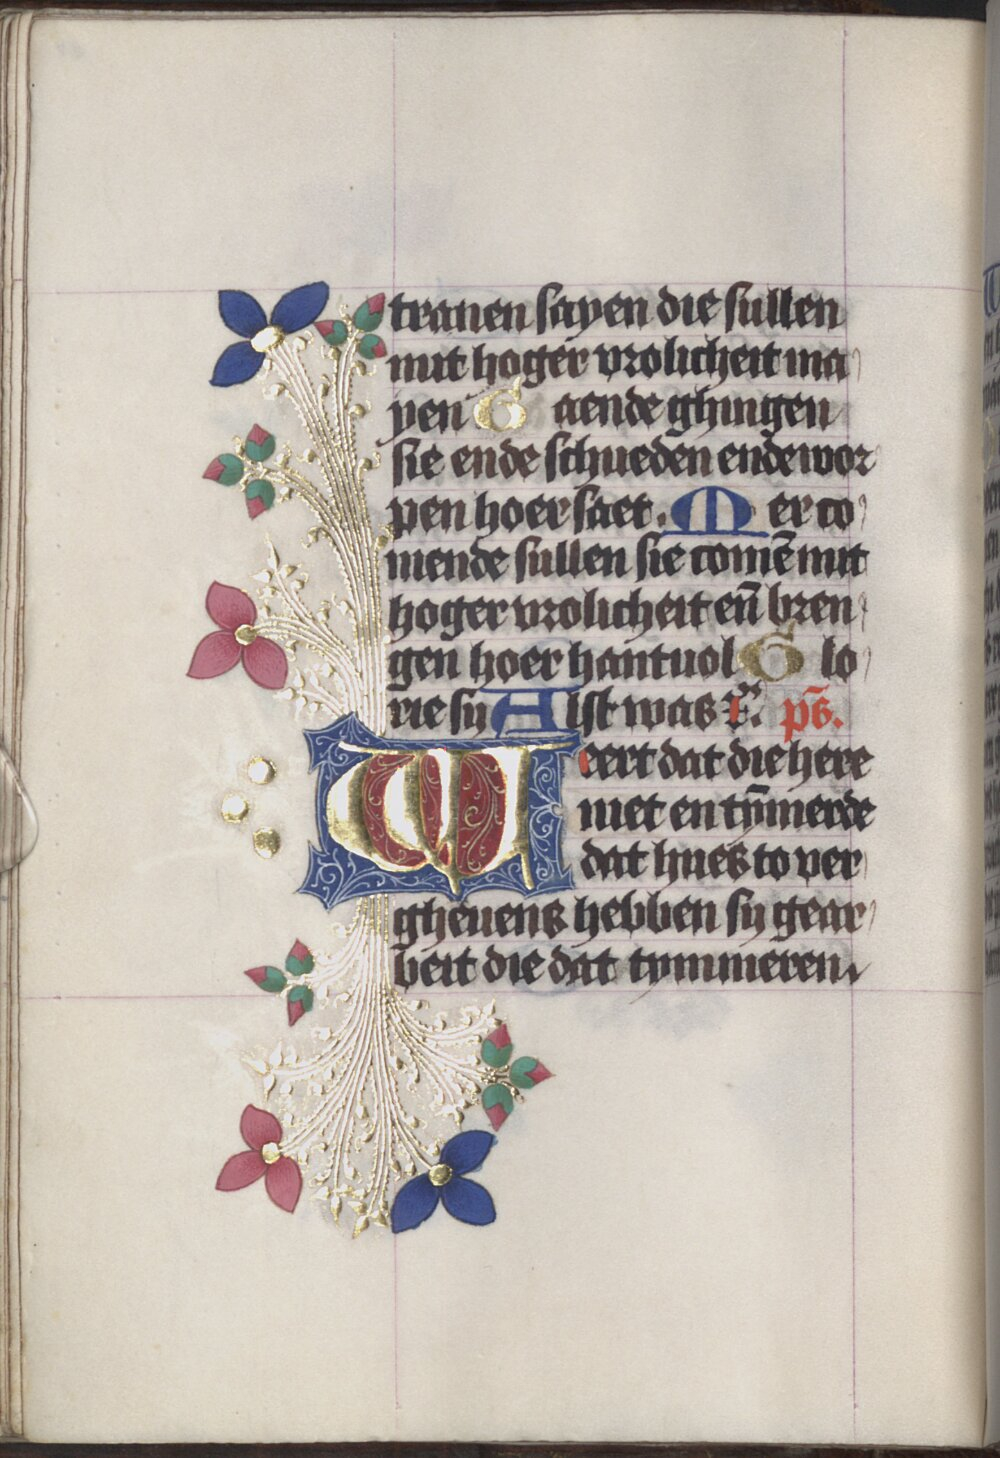 tranen sayen die sullen
mit hoger vrolicheit ma
yen Gaende ghingen
sie ende schrieden ende wor
pen hoer saet. Mer co
mende sullen sie comē mit
hoger vrolicheit en̄ bren
gen hoer hantuol Glo
rie sy Alst was ps.
Weert dat die here
niet en tȳmerde
dat hues to ver
gheuens hebben sy gear
beit die dat tymmeren.